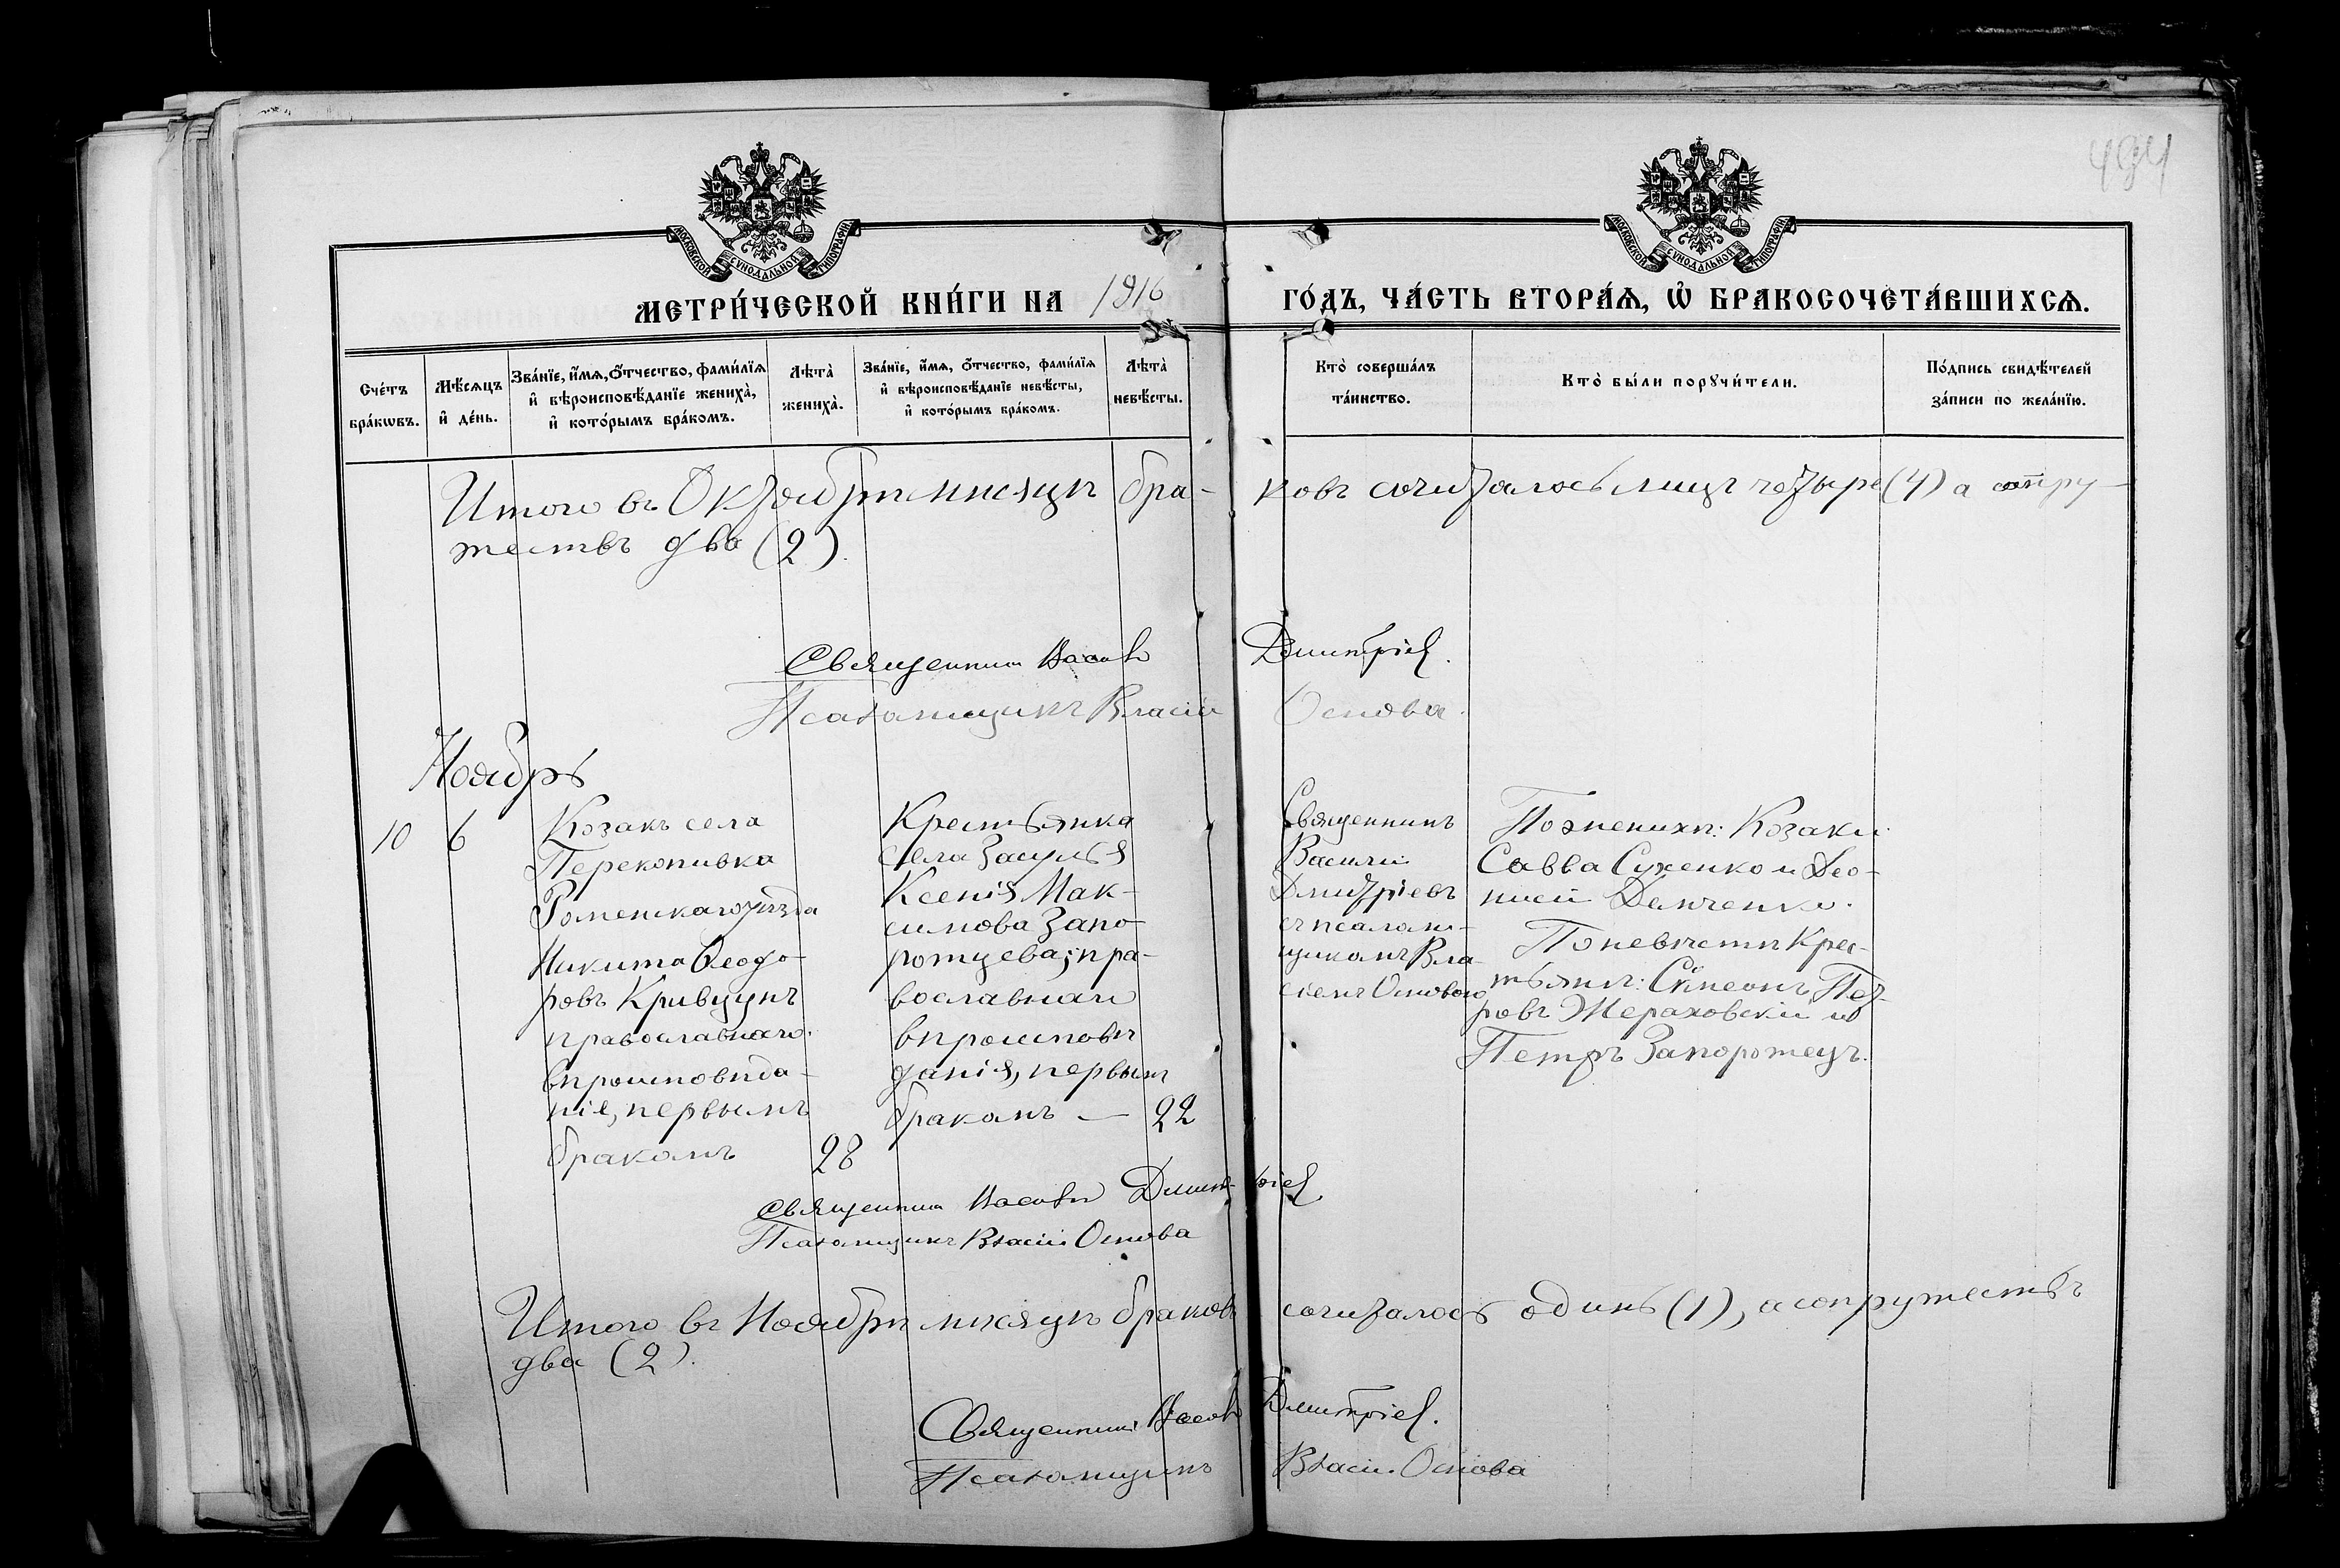 494
МОСКОВСКОЙ СУНОДАЛЬНОЙ ТИПОГРАФІИ
МОСКОВСКОЙ СУНОДАЛЬНОЙ ТИПОГРАФІИ
МЕТРИ́ЧЕСКОЙ КНИ́ГИ НА 1916 ГО́ДЪ, ЧА́СТЬ ВТОРА́Ѧ, Ѡ҆ БРАКОСОЧЕТА́ВШИХСѦ.
Сче́тъ
бра́кѡвъ.
Мѣ́сѧцъ
и҆ де́нь.
Зва́нїе, и҆́мѧ, ѻ҆́тчество, фами́лїѧ
и҆ вѣроисповѣ́данїе жениха̀,
и҆ кото́рымъ бра́комъ.
Лѣта̀
жениха̀.
Зва́нїе, и҆́мѧ, ѻ҆́тчество, фами́лїѧ
и҆ вѣроисповѣ́данїе невѣ́сты,
и҆ кото́рымъ бра́комъ.
Лѣта̀
невѣ́сты.
Кто̀ соверша́лъ
та́инство.
Кто̀ бы́ли порꙋчи́тели.
По́дпись свидѣ́телей
за́писи по жела́нїю.
Итого въ Октябрѣ мѣсяцѣ бра- ковъ сочиталось лицъ четыре (4) а супру-
жествъ два (2).
Священникъ Васил Дмитріев.
Псаломщикъ Власій Основа.
Ноябрь
10
6
Козакъ села
Перекоповка
Роменскаго уѣзда
Никита Ѳеодо-
ровъ Кривцунъ
православнаго
вѣроисповѣда-
ніе, первымъ
бракомъ
28
Крестьянка
села Засулья
Ксенія Мак-
симова Запо-
рожцева; пра-
вославнаго
вѣроисповѣ
данія, первымъ
бракомъ — 22
Священникъ
Василій
Дмитріевъ
съ псалом-
щикомъ Вла-
сіемъ Основою
По женихѣ: Козаки
Савва Сухенко и Ѳео-
Демченко.
По невѣстѣ Крес-
тьянѣ: Сѵмеонъ Пет-
ровъ Жераховскій и
Петръ Запорожецъ.
Священник Васил Дмитріев
Псаломщикъ Власій Основа
Итого въ Ноябрѣ мѣсяцѣ браковъ сочиталось одинъ (1), а сопружествъ
два (2).
Священник Васил Дмитріев.
Псаломщикъ Власій Основа